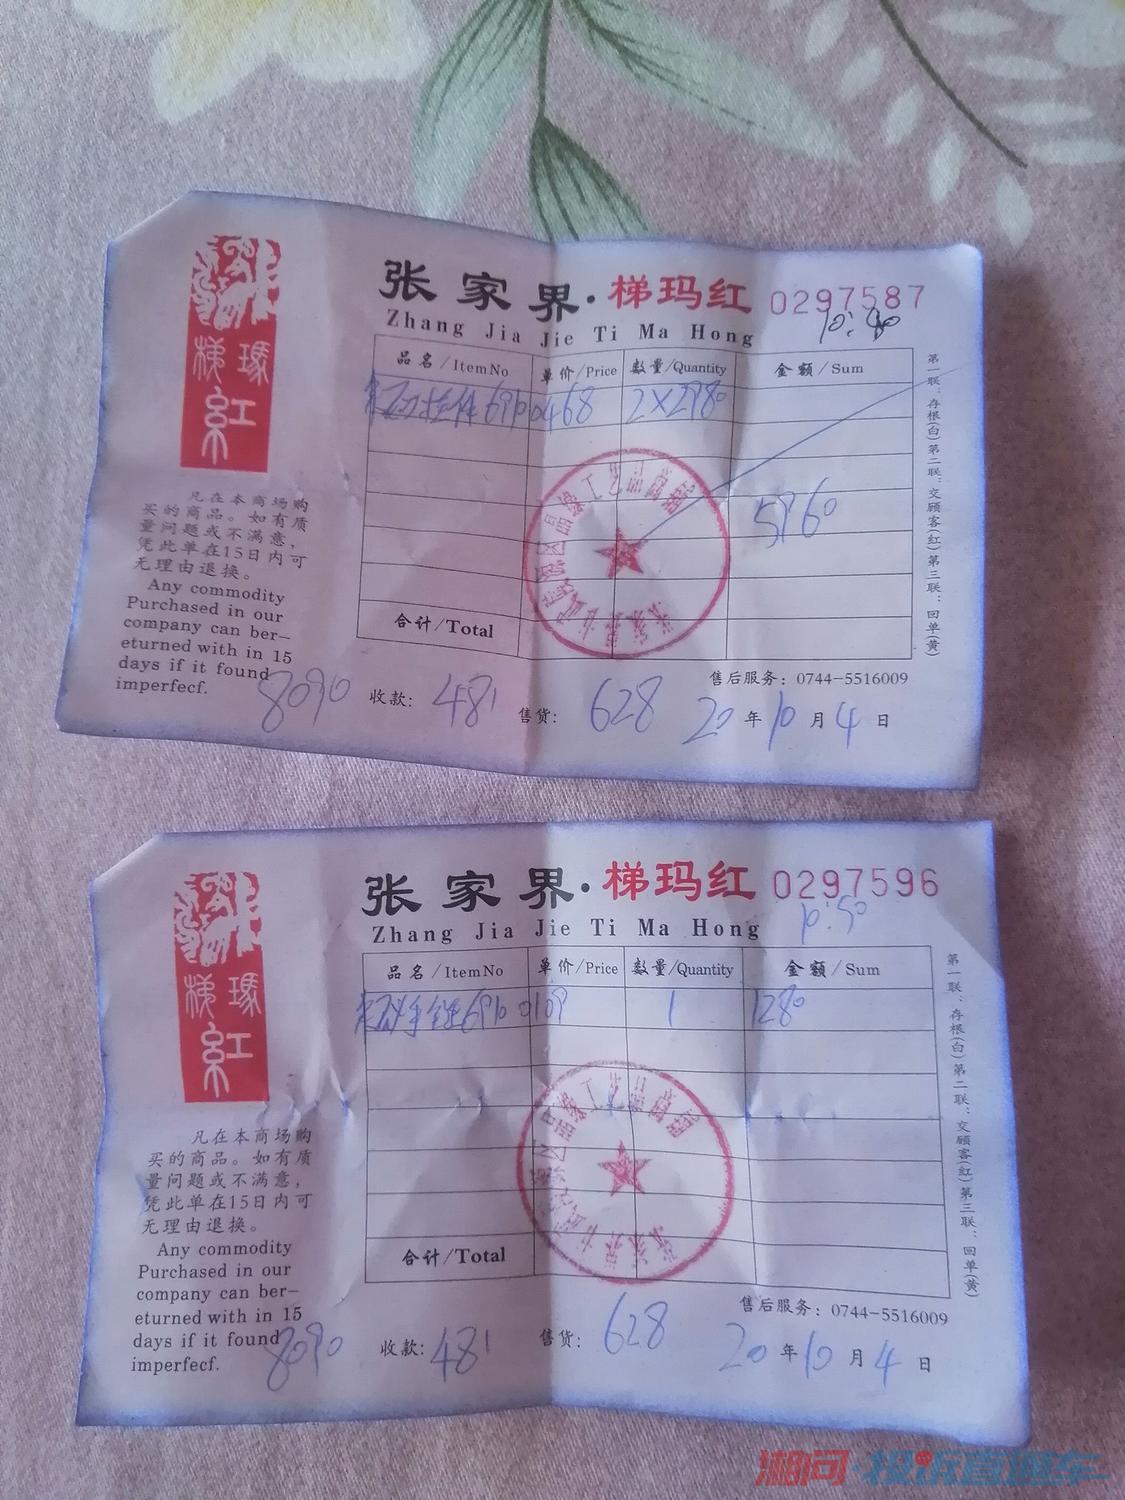 张家界·梯玛红 0297587
10:40
Zhang Jia Jie Ti Ma Hong
梯瑪紅
品名/ItemNo 单价/Price 数量/Quantity 金额/Sum
挂件6910 0468 2×2980
5960
合计/Total
凡在本商场购
买的商品。如有质
量问题或不满意,
凭此单在15日内可
无理由退换。
Any commodity
Purchased in our
company can ber-
eturned with in 15
days if it found
imperfecf.
第一联:存根(白)第二联:交顾客(红)第三联:回单(黄)
售后服务:0744-5516009
8090 收款:481 售货:628 20年10月4日
张家界·梯玛红 0297596
10:50
Zhang Jia Jie Ti Ma Hong
梯瑪紅
品名/ItemNo 单价/Price 数量/Quantity 金额/Sum
手链6910 0109 1 1280
合计/Total
凡在本商场购
买的商品。如有质
量问题或不满意,
凭此单在15日内可
无理由退换。
Any commodity
Purchased in our
company can ber-
eturned with in 15
days if it found
imperfecf.
第一联:存根(白)第二联:交顾客(红)第三联:回单(黄)
售后服务:0744-5516009
8090 收款:481 售货:628 20年10月4日
湘问·投诉直通车